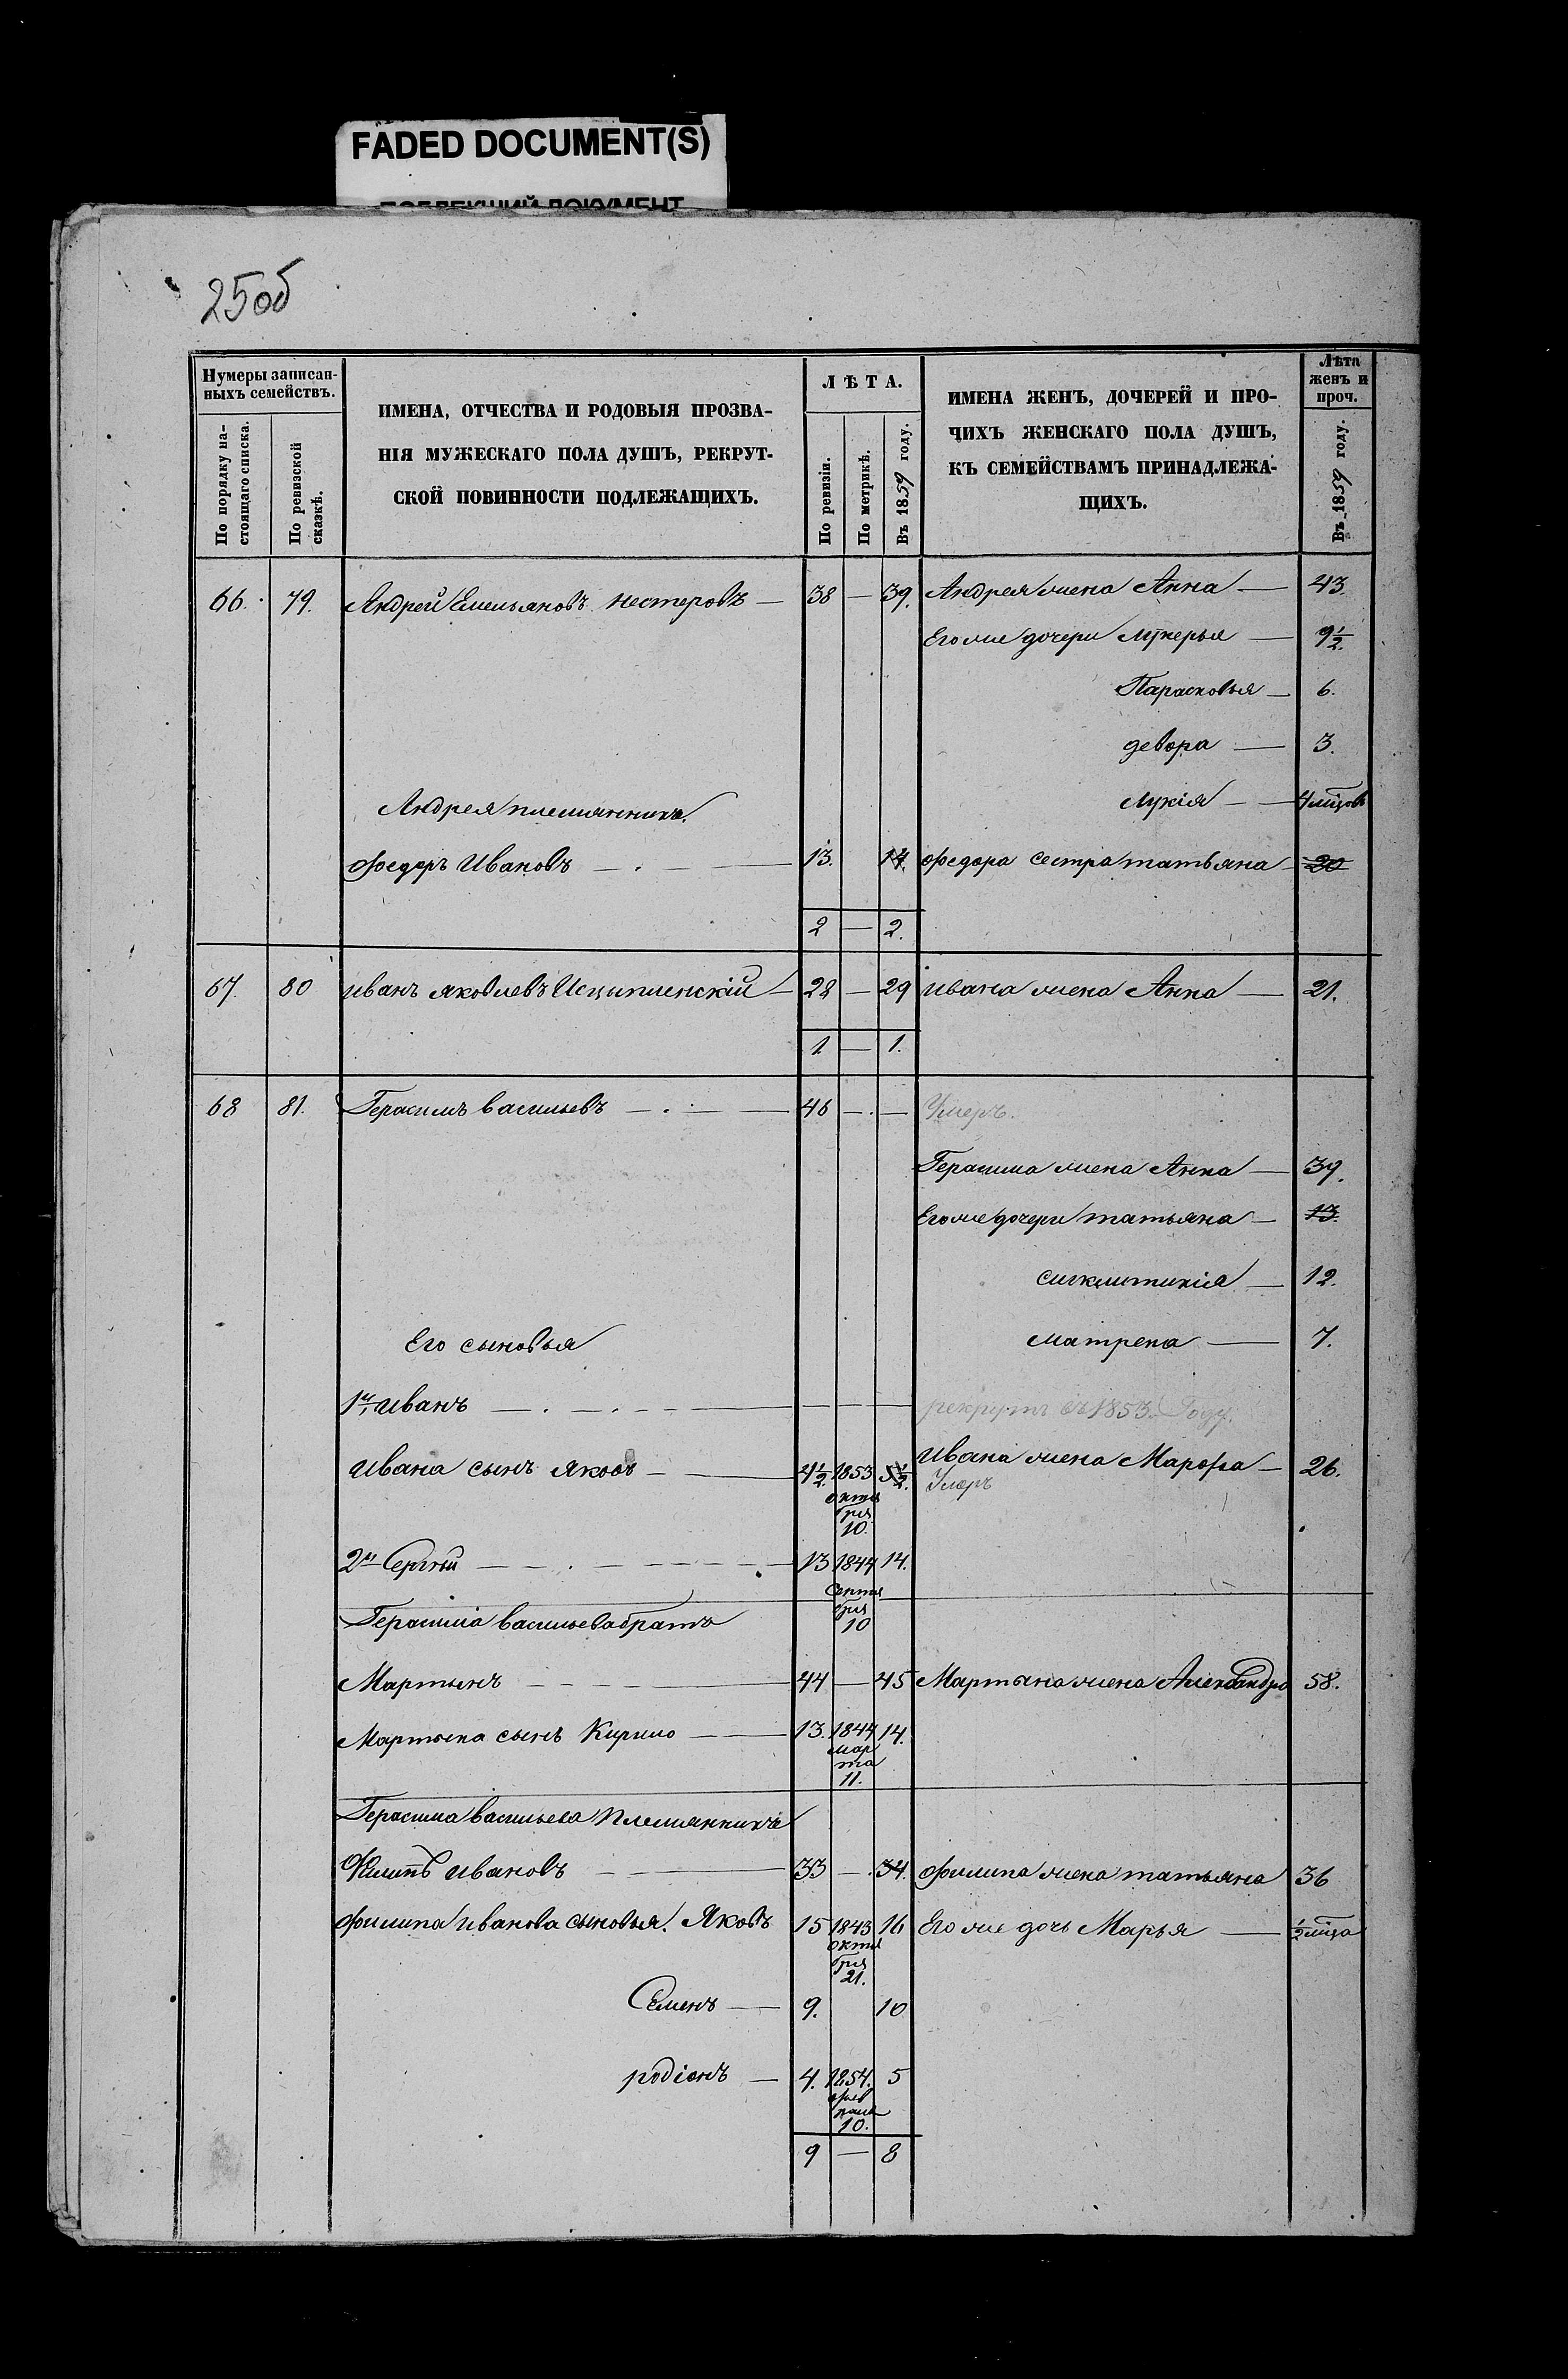 FADED DOCUMENT(S)
25об
Нумеры записан-
ныхъ семействъ.
По порядку на-
стоящаго списка.
По ревизской
сказкѣ.
ИМЕНА, ОТЧЕСТВА И РОДОВЫЯ ПРОЗВА-
НІЯ МУЖЕСКАГО ПОЛА ДУШЪ, РЕКРУТ-
СКОЙ ПОВИННОСТИ ПОДЛЕЖАЩИХЪ.
ЛѢТА.
По ревизіи.
По метрикѣ.
Въ 1859 году.
ИМЕНА ЖЕНЪ, ДОЧЕРЕЙ И ПРО-
ЧИХЪ ЖЕНСКАГО ПОЛА ДУШЪ,
КЪ СЕМЕЙСТВАМЪ ПРИНАДЛЕЖА-
ЩИХЪ.
Лѣта
женъ и
проч.
Въ 1859 году.
66. 79. Андрей Емельяновъ Нестеровъ — 38 — 39. Андрея жена Анна — 43.
Его же дочери Лукерья — 9 1/2.
Парасковья — 6.
девора — 3.
Лукія — 4 мѣцовъ
Андрея племянникъ.
Федоръ Ивановъ — 13. 14. Федора сестра татьяна 20
2 — 2.
67. 80 иванъ яковлевъ — 28 — 29 ивана жена Анна — 21.
1 — 1.
68 81. Герасимъ васильевъ — 46 — . — Умеръ.
Герасима жена Анна — 39.
Его же дочери татьяна — 13.
сигклитикія — 12.
Его сыновья
матрена — 7.
1й, иванъ — рекрутъ въ 1853. Году.
ивана сынъ яковъ — 4 1/2. 1853 5 1/2. ивана жена Марфа — 26.
октя
бря
10.
Умеръ
2й Сергѣй — 13 1844 14.
Сентя
бря
10
Герасима васильева братъ
Мартынъ — 44 — 45 Мартына жена Александра 58.
Мартына сынъ Кирило — 13. 1844 14.
мар
та
11.
Герасима васильева племянникъ
Филипъ ивановъ — 33 — 34. филипа жена татьяна 36
филипа иванова сыновья. Яковъ 15 1843 16 Его же дочь Марья — 1/2 мѣца
октя
бря
21.
Семенъ — 9. 10
родіонъ — 4. 1854. 5
фев
раля
10.
9 — 8